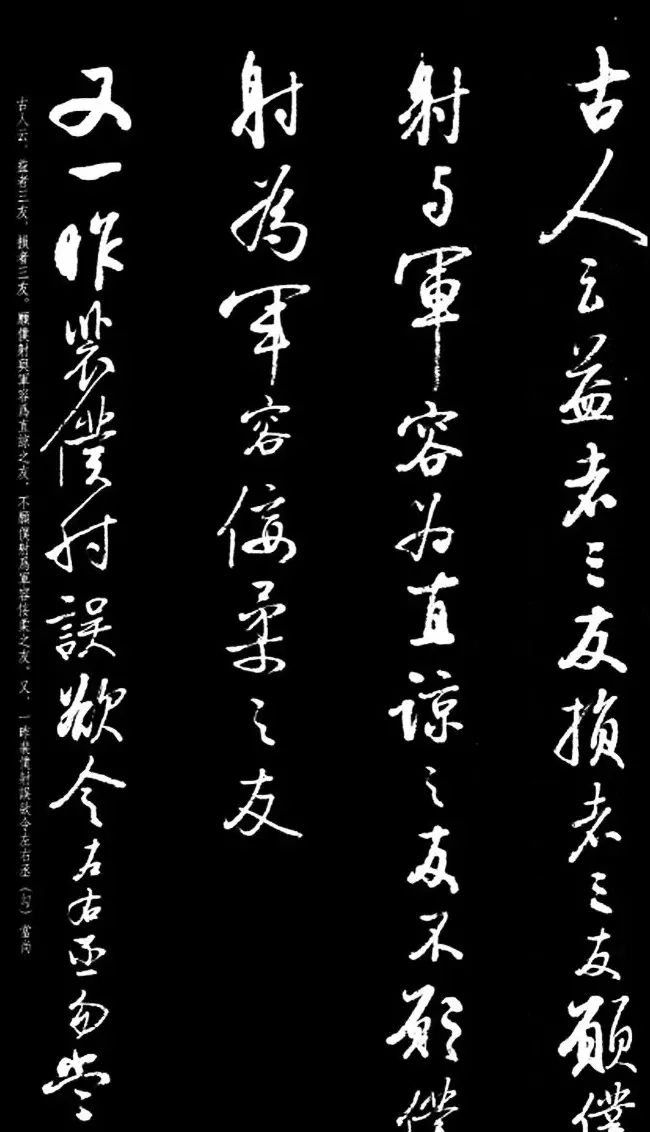 古人云益者三友損者三友願僕
射与軍容为直諒之友不願僕
射為軍容佞柔之友
又一昨裴僕射誤欲令左右丞勾當
古人云，益者三友，損者三友。願僕射與軍容爲直諒之友，不願僕射爲軍容佞柔之友。又，一昨裴僕射誤欲令左右丞（勾）當尚